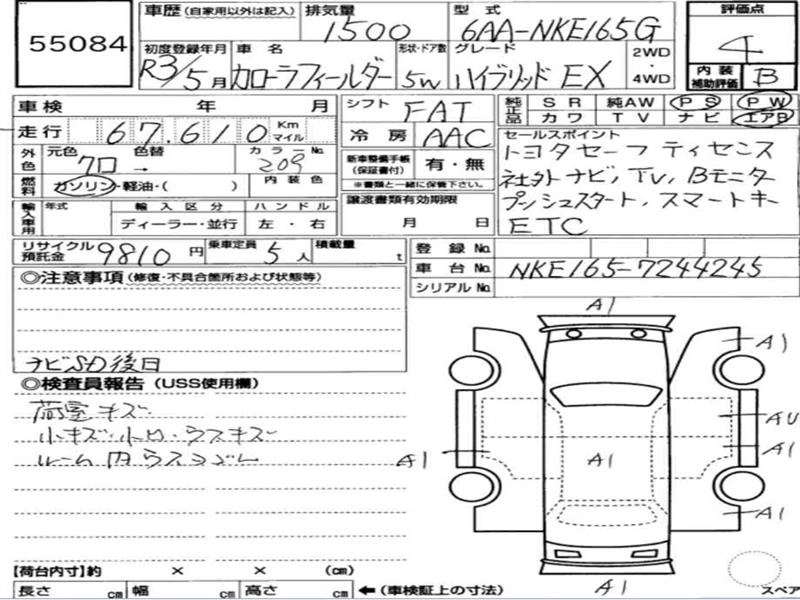 55084
車歴 (自家用以外は記入) 排気量 1500 型式 6AA-NKE165G 評価点 4
初度登録年月 R3/5月 車名 カローラフィールダー 形状・ドア数 5W グレード ハイブリッド EX 2WD・4WD 内装補助評価 B
車検 年 月 シフト FAT 純正品 SR 純AW PS PW
カワ TV ナビ エアB
走行 67,610 Km マイル 冷房 AAC セールスポイント
外色 元色 クロ 色替 → カラーNo. 209 新車整備手帳 (保証書付) 有・無 ※書類と一緒に保管下さい。
トヨタセーフティセンス
燃料 ガソリン・軽油・( ) 内装色
社外ナビ, TV, Bモニター
輸入車用 年式 輸入区分 ハンドル 譲渡書類有効期限 プッシュスタート, スマートキー
ディーラー・並行 左・右 月 日 ETC
リサイクル預託金 9810円 乗車定員 5人 積載量 t 登録No.
車台No. NKE165-7244245
シリアルNo.
◎注意事項 (修復・不具合箇所および状態等)
ナビSD後日
◎検査員報告 (USS使用欄)
荷室キズ
小キズ・小凹・ウスキズ
ルーム内ウスヨゴレ
A1
A1
AU
A1
A1
A1
A1
A1
【荷台内寸】約 × × (cm)
長さ cm 幅 cm 高さ cm ←(車検証上の寸法) スペア